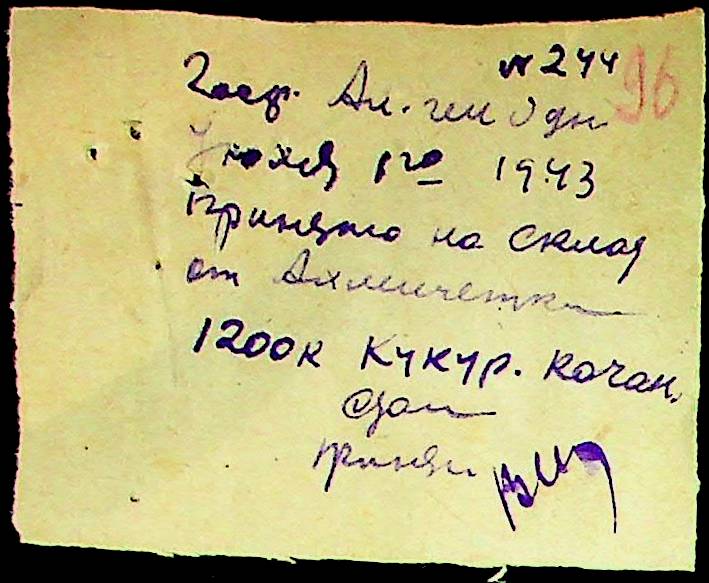 № 244
96
Госф. Ал.
1го 1943
Принято на склад
от Ахмечетки
1200к кукур. качан.
Сдал
принял